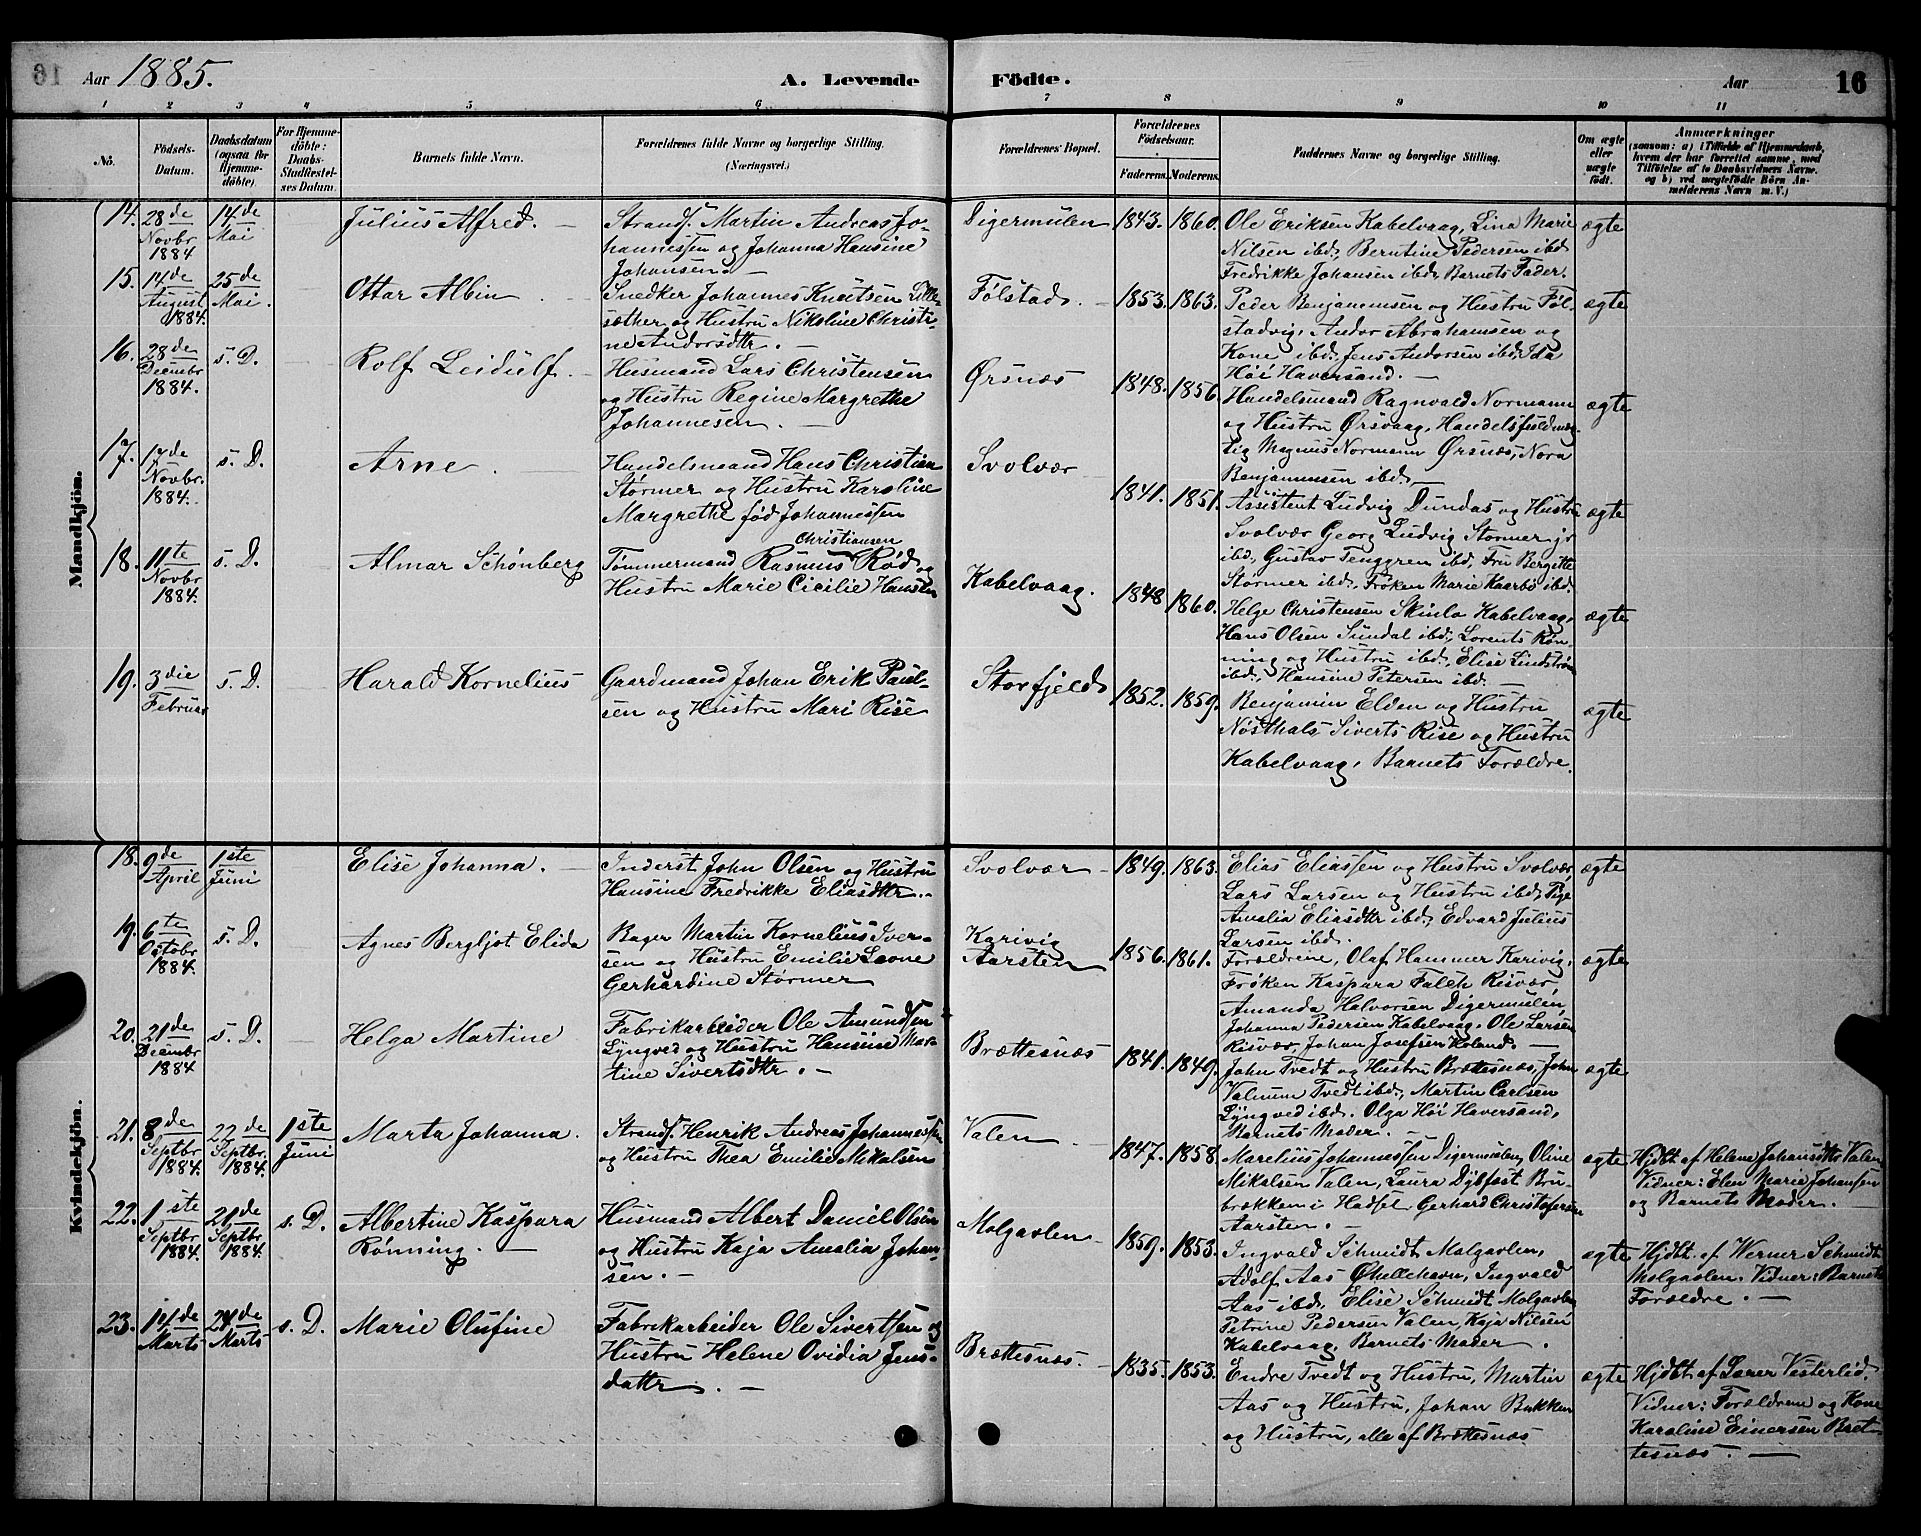 16
Aar 1885.
A. Levende Födte.
Aar
16
1 2 3 4 5 6 7 8 9 10 11
No.
Födsels-Datum.
Daabsdatum (ogsaa for Hjemme-döbte).
For Hjemme-döbte: Daabs-Stadfæstel-ses Datum.
Barnets fulde Navn.
Forældrenes fulde Navne og borgerlige Stilling. (Næringsvei.)
Forældrenes Bopæl.
Forældrenes Födselsaar.
Faderens. Moderens.
Faddernes Navne og borgerlige Stilling.
Om ægte eller uægte født.
Anmærkninger
(saasom: a) i Tilfælde af Hjemmedaab, hvem der har forrettet samme, med Tilföielse af to Daabsvidners Navne. og b) ved uægtefödte Börn An-melderens Navn m. V.)
Mandkjön.
14. 28de Novbr 1884 14de Mai Julius Alfred. —
Strands. Martin Andreas Jo-
hannessen og Johanna Hansine
Johansen. —
Digermulen 1843. 1860.
Ole Eriksen Kabelvaag, Lina Marie
Nilsen ibd., Berntine Pedersen ibd
Fredrikke Johansen ibd, Barnets Fader.
ægte
15. 14de August 1884. 25de Mai. Ottar Albin
Snedker Johannes Knutsen Lille-
sæther og Hustru Nikoline Christi-
ne Andorsdtr. —
Følstad. 1853. 1863.
Peder Benjaminsen og Hustru Føl-
stadvig, Andor Abrahamsen og
Kone ibd., Jens Andorsen ibd, Ida
Høi Haversand. —
ægte
16. 28de Decembr 1884. s. D. Rolf Leidulf.
Husmand Lars Christensen
og Hustru Regine Margrethe
Johannesen. —
Ørsnæs 1848. 1856
Handelsmand Ragnvald Normann
og Hustru Ørsvaag, Handelsfuldmæg-
tig Magnus Normann Ørsnæs, Nora
Benjaminsen ibd. —
ægte
17. 17de Novbr. 1884. s. D. Arne.
Handelsmand Hans Christian
Størmer og Hustru Karoline
Margrethe fød Johannessen
Svolvær 1841. 1851.
Assistent Ludvig Dundas og Hustru
Svolvær Georg Ludvig Størmer jr
ibd., Gustav Tenggren ibd, Fru Bergitte
Størmer ibd., Frøken Marie Kaarbø ibd.
ægte
18. 11te Novbr 1884. s. D. Almar Schønberg
Christiansen
Tømmermand Rasmus Rød og
Hustru Marie Cicilie Hansen
Kabelvaag. 1848 1860.
Helge Christensen Skinlo Kabelvaag,
Hans Olsen Sundal ibd., Lorents Røn-
ning og Hustru ibd., Elise Lindstrøm
ibd., Hansine Petersen ibd. —
ægte
19. 3die Februar s. D. Harald Kornelius
Gaardmand Johan Erik Paul-
sen og Hustru Mari Rise
Storfjeld 1852. 1859.
Benjamin Elden og Hustru
Nøsthals Siverts Rise og Hustru
Kabelvaag, Barnets Forældre.
ægte
Kvindekjön.
18. 9de April 1ste Juni Elise Johanna. —
Inderst John Olsen og Hustru
Hansine Fredrikke Eliasdtr. —
Svolvær 1849. 1863.
Elias Eliassen og Hustru Svolvær,
Lars Larsen og Hustru ibd, Pige
Amalia Eliasdtr ibd., Edvard Julius
Larsen ibd.
ægte
19. 6te Octobr 1884. s. D. Agnes Bergljot Elida
Bager Martin Kornelius Iver-
sen og Hustru Emilie Leone
Gerhardine Størmer
Karivig
Aarsten 1856. 1861.
Forældrene, Olaf Hammer Karivig,
Frøken Kaspara Falch Risvær,
Amanda Halvorsen Digermulen,
Johanna Pedersen Kabelvaag, Ole Larsen
Risvær, Johan Josefsen Holand. —
ægte
20. 21de Decembr 1884 s. D. Helga Martine
Fabrikarbeider Ole Amundsen
Lyngved og Hustru Hansine Mar-
tine Sivertsdtr. —
Brættesnæs 1841. 1849.
John Tvedt og Hustru Brættesnæs, John
Valnum Tvedt ibd., Martin Carlsen
Lyngved ibd. Olga Høi Haversand,
Barnets Moder. —
ægte
21. 8de Septbr 1884. 22de Septbr. 1884. 1ste Juni Marta Johanna.
Strands. Henrik Andreas Johannessen
og Hustru Thea Emilie Mikalsen
Valen 1847. 1858.
Marelius Johannessen Digermulen, Oline
Mikalsen Valen, Laura Dybfest Bru-
brækken i Hadsel, Gerhard Christofersen
Aarsten. —
ægte
Hjdbt af Helene Johansdtr Valen
Vidner: Elen Marie Johansen
og Barnets Moder. —
22. 1ste Septbr 1884. 21de Septbr 1884. s. D. Albertine Kaspara
Rønning. —
Husmand Albert Daniel Olsen
og Hustru Kaja Amalia Johan-
sen. —
Molgavlen 1859. 1853.
Ingvald Schmidt Molgavlen,
Adolf Aas Skellehavn, Ingvald
Aas ibd, Elise Schmidt Molgavlen
Petrine Pedersen Valen, Kaja Nilsen
Kabelvaag, Barnets Moder.
ægte
Hjdbt af Werner Schmidt
Molgavlen. Vidner: Barnets
Forældre. —
23. 14de Marts 24de Marts s. D. Marie Olufine
Fabrikarbeider Ole Sivertsen og
Hustru Helene Ovidia Jens-
dattr. —
Brættesnæs. 1835. 1853.
Endre Tvedt og Hustru, Martin
Aas og Hustru, Johan Bakken
og Hustru, alle af Brættesnæs
ægte
Hjdbt af Lærer Vesterlid.
Vidner: Forældrene og Kone
Karoline Einersen Bret-
tesnæs. —